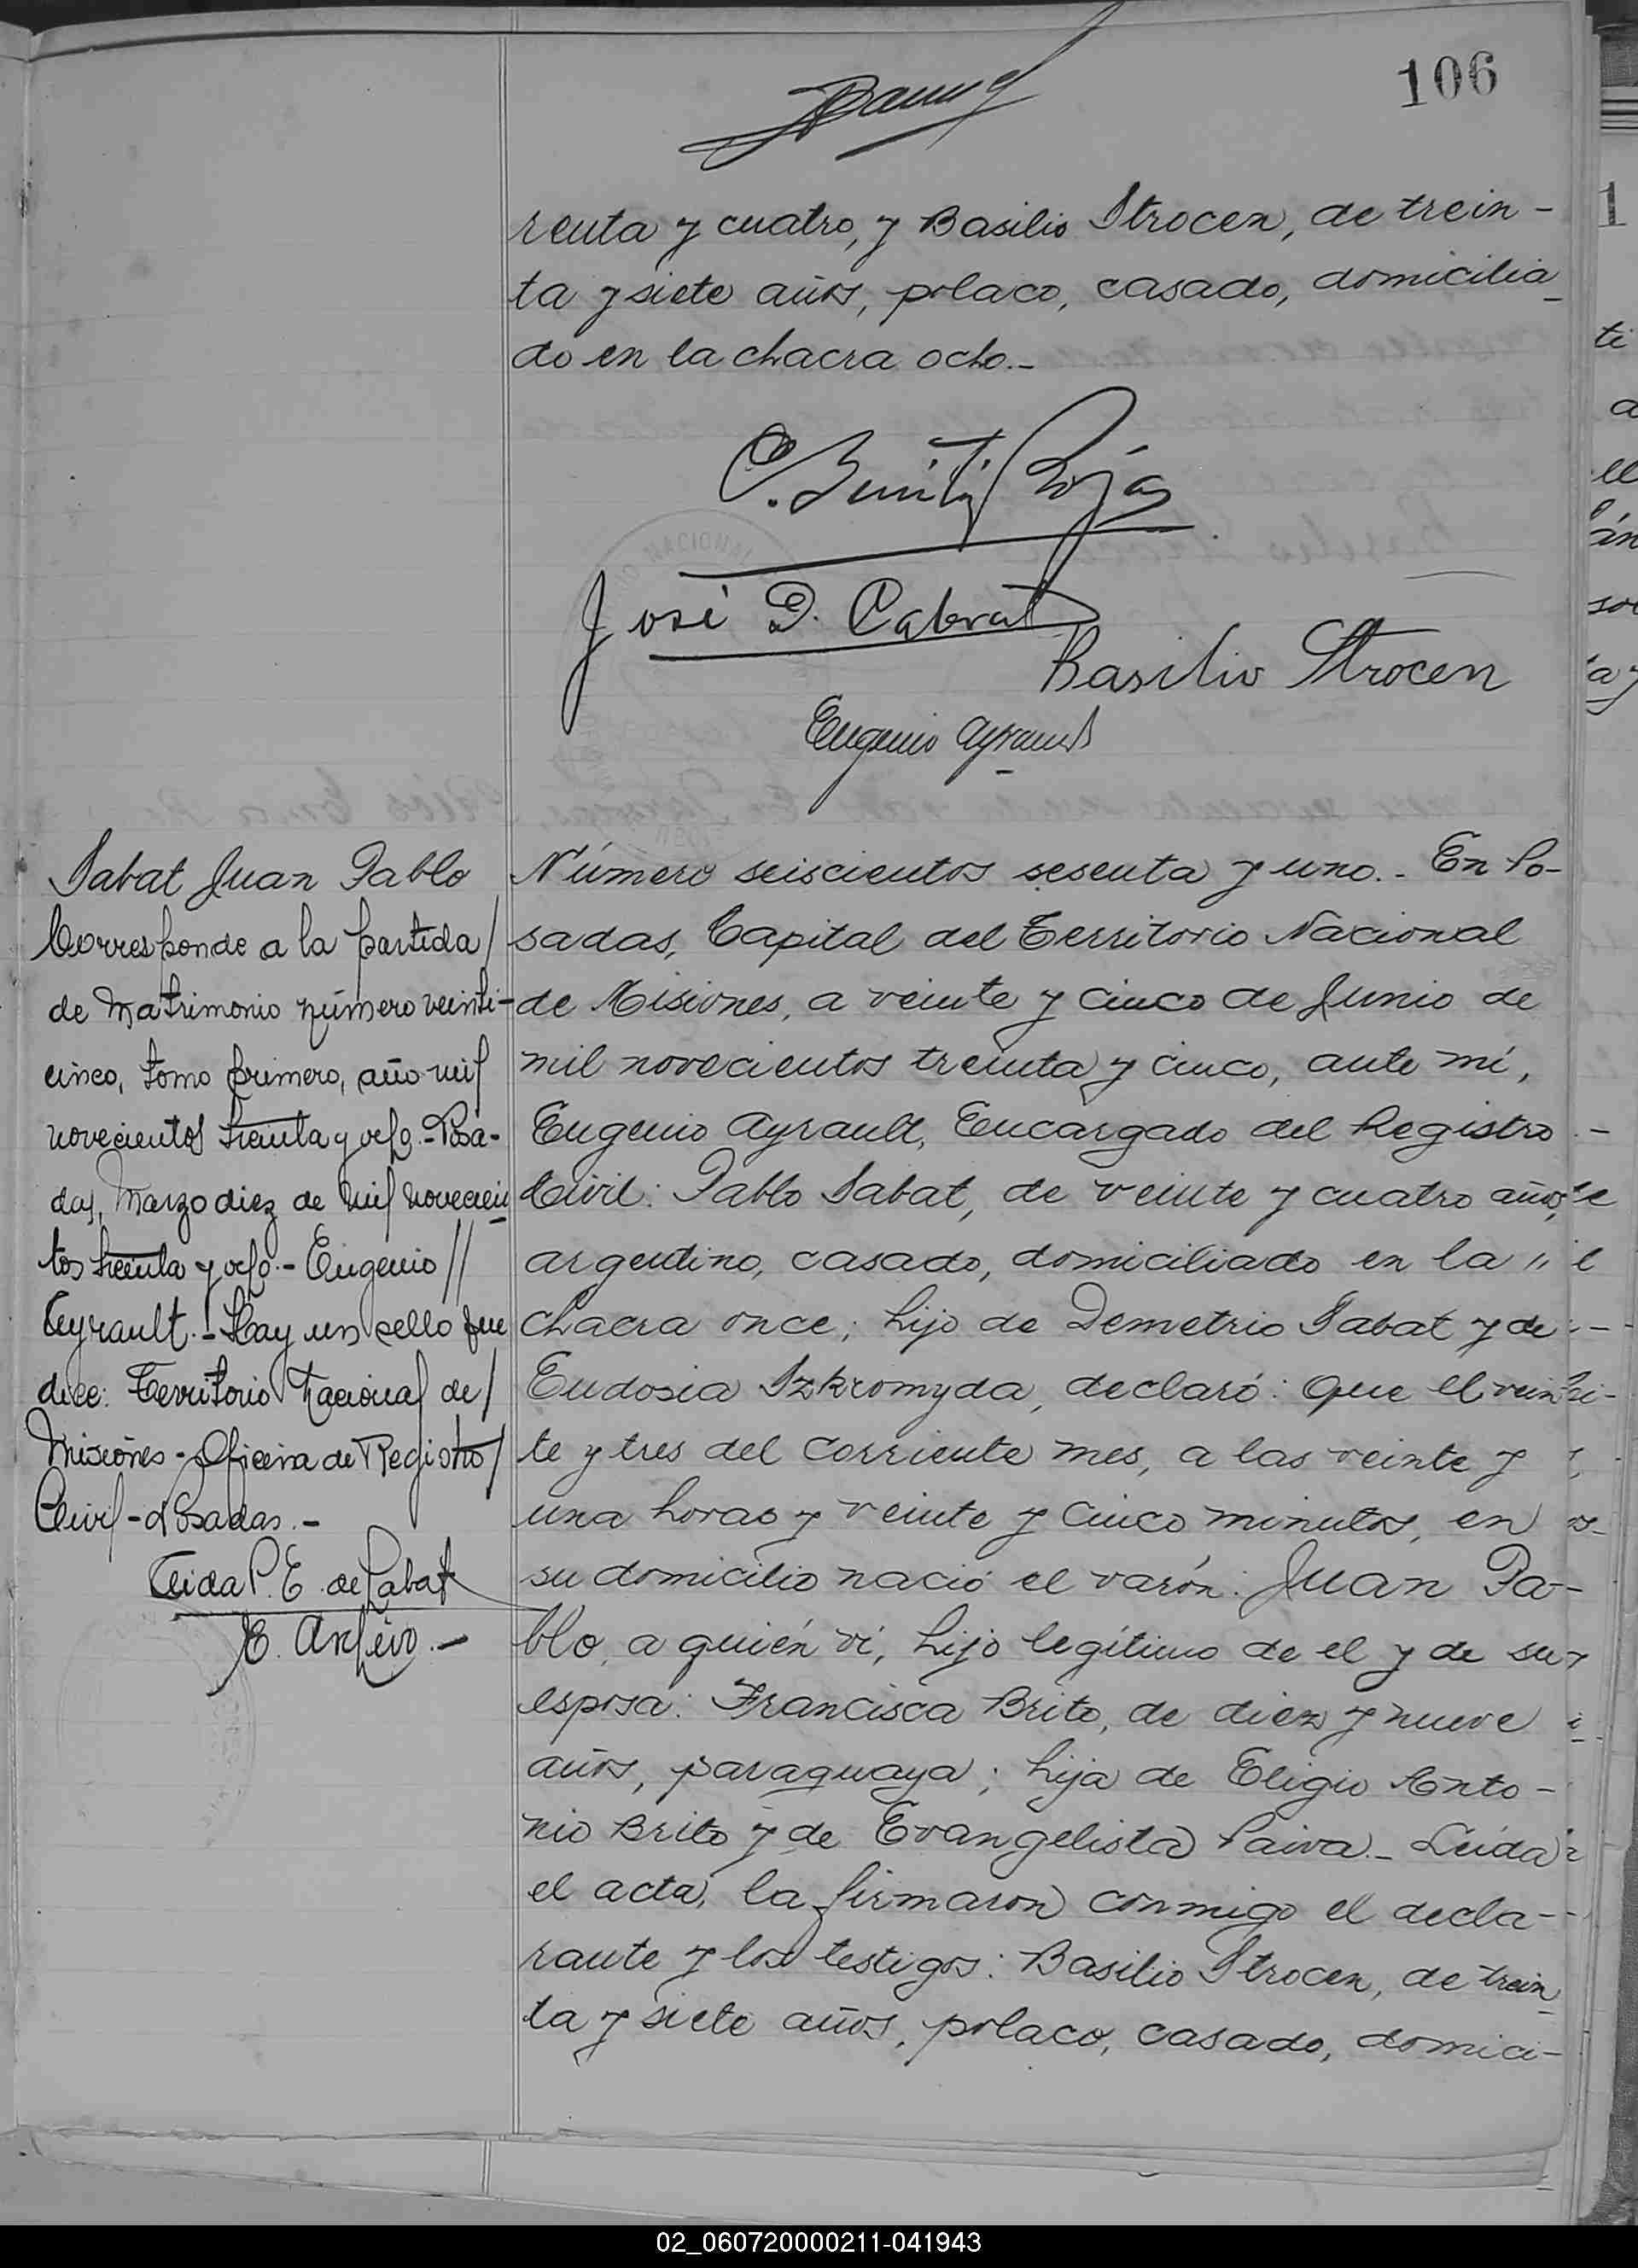 106
renta y cuatro, y Basilio Strocen, de trein-
ta y siete años, polaco, casado, domicilia-
do en la chacra ocho.-
José D. Cabral
Basilio Strocen
Eugenio Ayrault
Sabat Juan Pablo
Corresponde a la partida/
de Matrimonio número veinti-
cinco, tomo primero, año mil
novecientos treinta y ocho.- Posa-
das, Marzo diez de mil novecien
tos treinta y ocho.- Eugenio //
Ayrault.- Hay un sello que
dice: Territorio Nacional de/
Misiones - Oficina de Registro/
Civil - Posadas.-
Aida P. E. de Sabat
E. Archivo.-
Número seiscientos sesenta y uno.- En Po-
sadas, Capital del Territorio Nacional
de Misiones, a veinte y cinco de Junio de
mil novecientos treinta y cinco, ante mí,
Eugenio Ayrault, Encargado del Registro
Civil: Pablo Sabat, de veinte y cuatro años,
argentino, casado, domiciliado en la "
chacra once; hijo de Demetrio Sabat y de
Eudosia Szkromyda, declaró: Que el vein-
te y tres del corriente mes, a las veinte y
una horas y veinte y cinco minutos, en
su domicilio nació el varón: Juan Pa-
blo, a quién ví, hijo legítimo de el y de su
esposa: Francisca Brito, de diez y nueve
años, paraguaya; hija de Eligio Anto-
nio Brito y de Evangelista Paiva.- Leída
el acta, la firmaron conmigo el decla-
rante y los testigos: Basilio Strocen, de trein
ta y siete años, polaco, casado, domici-
02_060720000211-041943